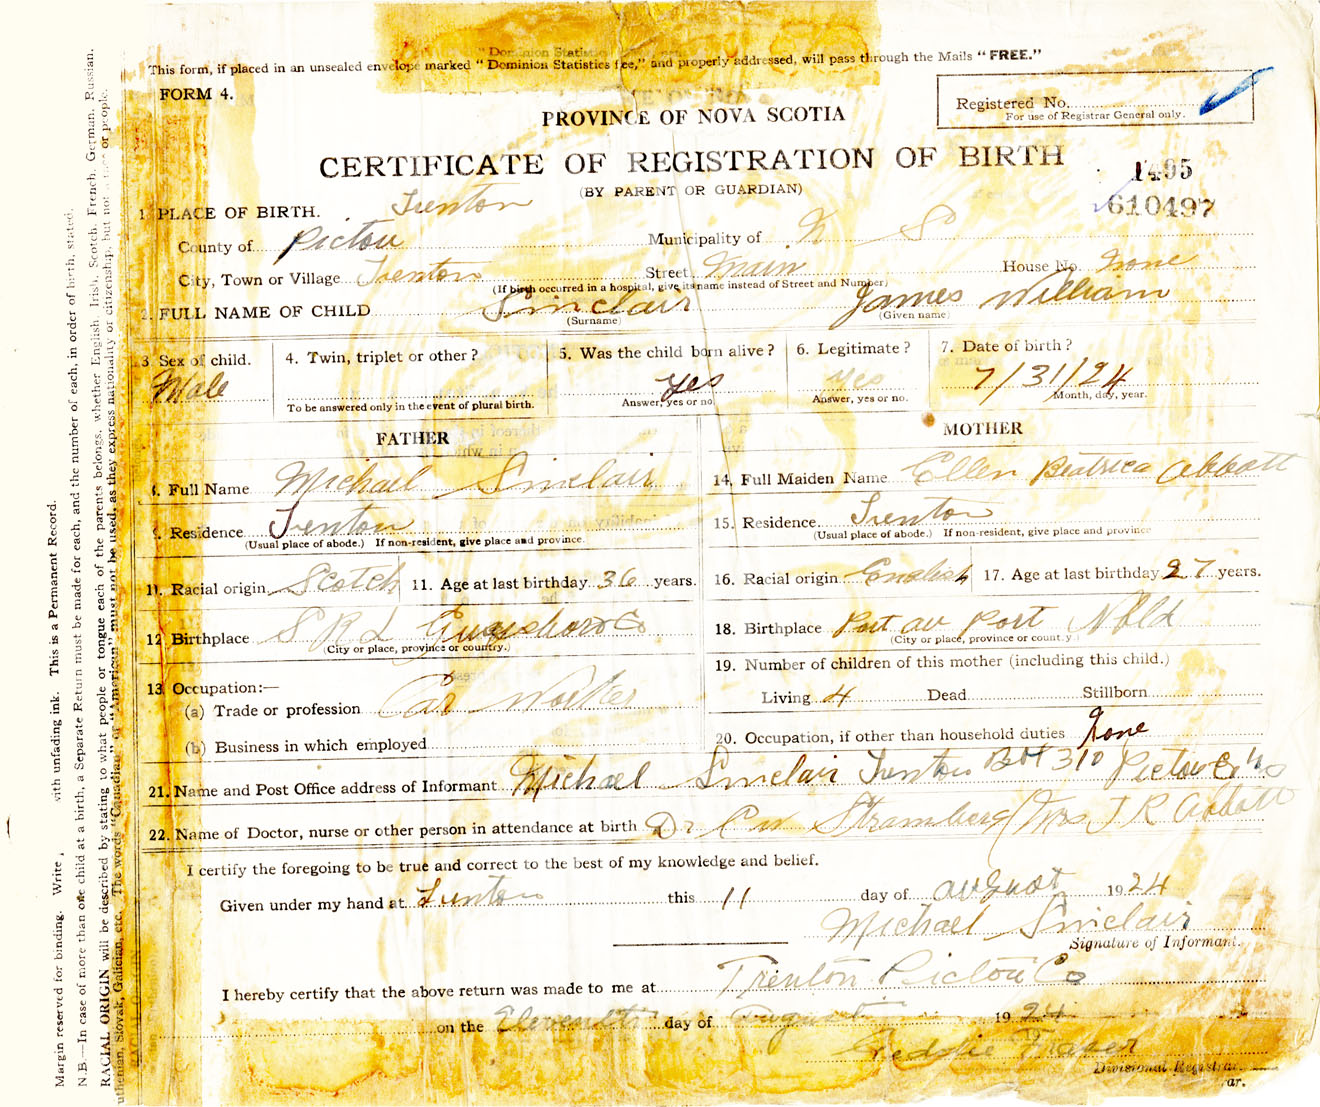 This form, if placed in an unsealed envelope marked "Dominion Statistics free," and properly addressed, will pass through the Mails "FREE."
FORM 4.
Registered No.
For use of Registrar General only.
PROVINCE OF NOVA SCOTIA
CERTIFICATE OF REGISTRATION OF BIRTH
(BY PARENT OR GUARDIAN)
1495
610497
1. PLACE OF BIRTH. Trenton
County of Pictou Municipality of N S
City, Town or Village Trenton Street Main House No. None
(If birth occurred in a hospital, give its name instead of Street and Number)
2. FULL NAME OF CHILD Sinclair James William
(Surname) (Given name)
3 Sex of child. Male
4. Twin, triplet or other?
To be answered only in the event of plural birth.
5. Was the child born alive? yes
Answer, yes or no.
6. Legitimate? yes
Answer, yes or no.
7. Date of birth? 7/31/24
Month, day, year.
FATHER
Full Name Michael Sinclair
9. Residence Trenton
(Usual place of abode.) If non-resident, give place and province.
11. Racial origin Scotch 11. Age at last birthday 36 years.
12 Birthplace S R L Guysboro Co
(City or place, province or country.)
13. Occupation:—
(a) Trade or profession Car Worker
(b) Business in which employed
MOTHER
14. Full Maiden Name Ellen Beatrice Abbott
15. Residence Trenton
(Usual place of abode.) If non-resident, give place and province
16. Racial origin English 17. Age at last birthday 27 years.
18. Birthplace Port au Port Nfld
(City or place, province or country.)
19. Number of children of this mother (including this child.)
Living 4 Dead Stillborn
20. Occupation, if other than household duties None
21. Name and Post Office address of Informant Michael Sinclair Trenton Box 310 Pictou Co NS
22. Name of Doctor, nurse or other person in attendance at birth Dr C W Stramberg (Mrs J R Abbott
I certify the foregoing to be true and correct to the best of my knowledge and belief.
Given under my hand at Trenton this 11 day of august 1924
Michael Sinclair
Signature of Informant.
I hereby certify that the above return was made to me at Trenton Pictou Co
on the Eleventh day of August 1924
Freddie Fraser
Divisional Registrar.
rar.
Margin reserved for binding. Write with unfading ink. This is a Permanent Record.
N.B.—In case of more than one child at a birth, a Separate Return must be made for each, and the number of each, in order of birth, stated.
RACIAL ORIGIN will be described by stating to what people or tongue each of the parents belongs, whether English, Irish, Scotch, French, German, Russian,
uthenian, Slovak, Galician, etc. The words "Canadian" or "American" must not be used, as they express nationality or citizenship, but not a race or people.